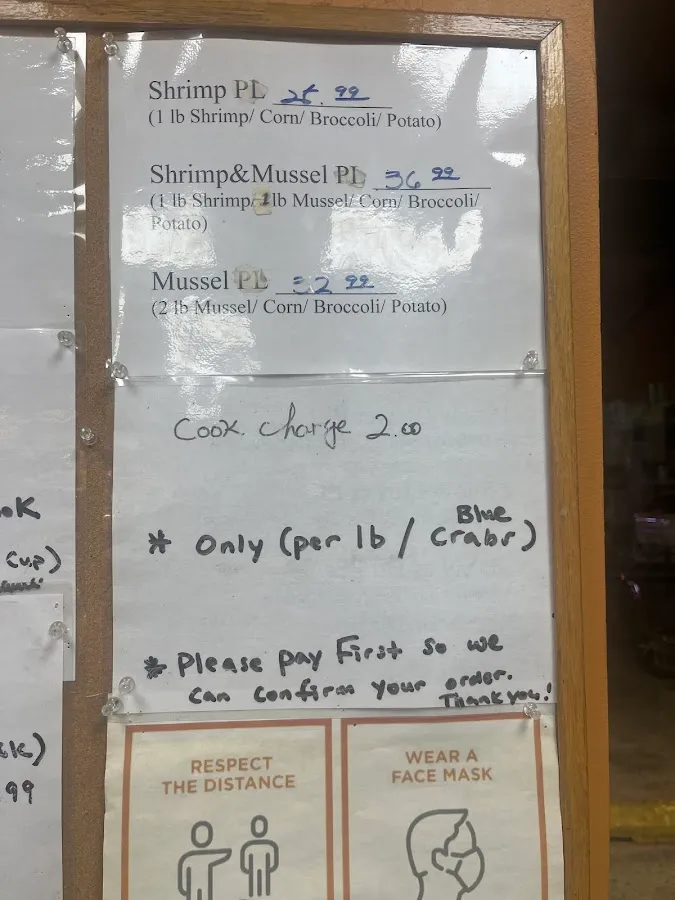 Shrimp PL 25.99
(1 lb Shrimp/ Corn/ Broccoli/ Potato)
Shrimp&Mussel PL 36 99
(1 lb Shrimp/ 1lb Mussel/ Corn/ Broccoli/
Potato)
Mussel PL 32 99
(2 lb Mussel/ Corn/ Broccoli/ Potato)
Cook charge 2.00
* Only (per lb / Blue Crabs)
* Please pay First so we
can confirm your order.
Thank you!
RESPECT
THE DISTANCE
WEAR A
FACE MASK
Cup)
99